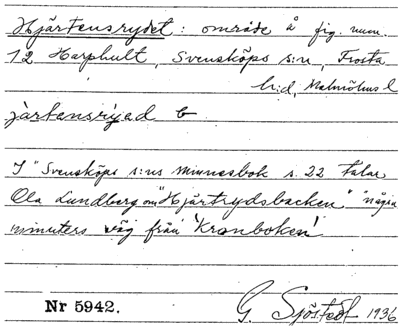 Hjärtensrydet: område å fig. num.
12 Harphult, Svensköps s:n, Frosta
h:d, Malmöhus l
järtansryad
I "Svensköps s:ns minnesbok s. 22 talar
Ola Lundberg om "Hjärtrydsbacken" "några
minuters väg från 'Kronboken'
Nr 5942. G. Sjöstedt 1936